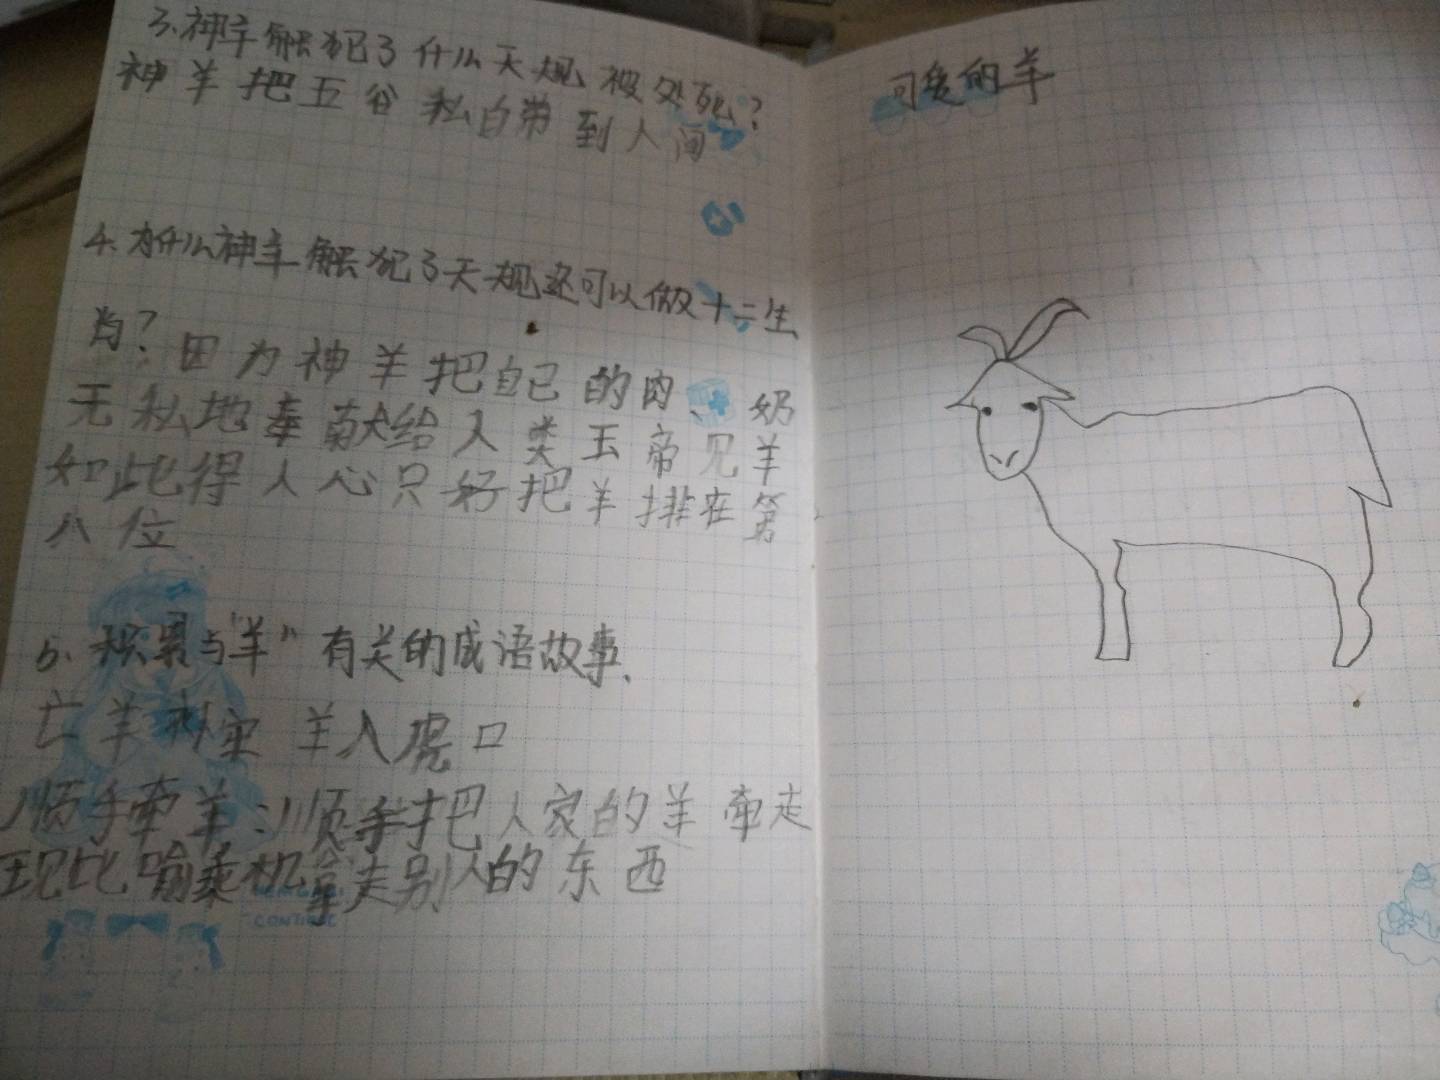 3.神羊触犯了什么天规被处死?
神羊把五谷私自带到人间
4.为什么神羊触犯了天规还可以做十二生
肖?因为神羊把自己的肉、奶
无私地奉献给人类玉帝见羊
如此得人心只好把羊排在第
八位
5.积累与"羊"有关的成语故事.
亡羊补牢 羊入虎口
顺手牵羊:顺手把人家的羊牵走
现比喻乘机拿走别人的东西
CONTINUE
可爱的羊